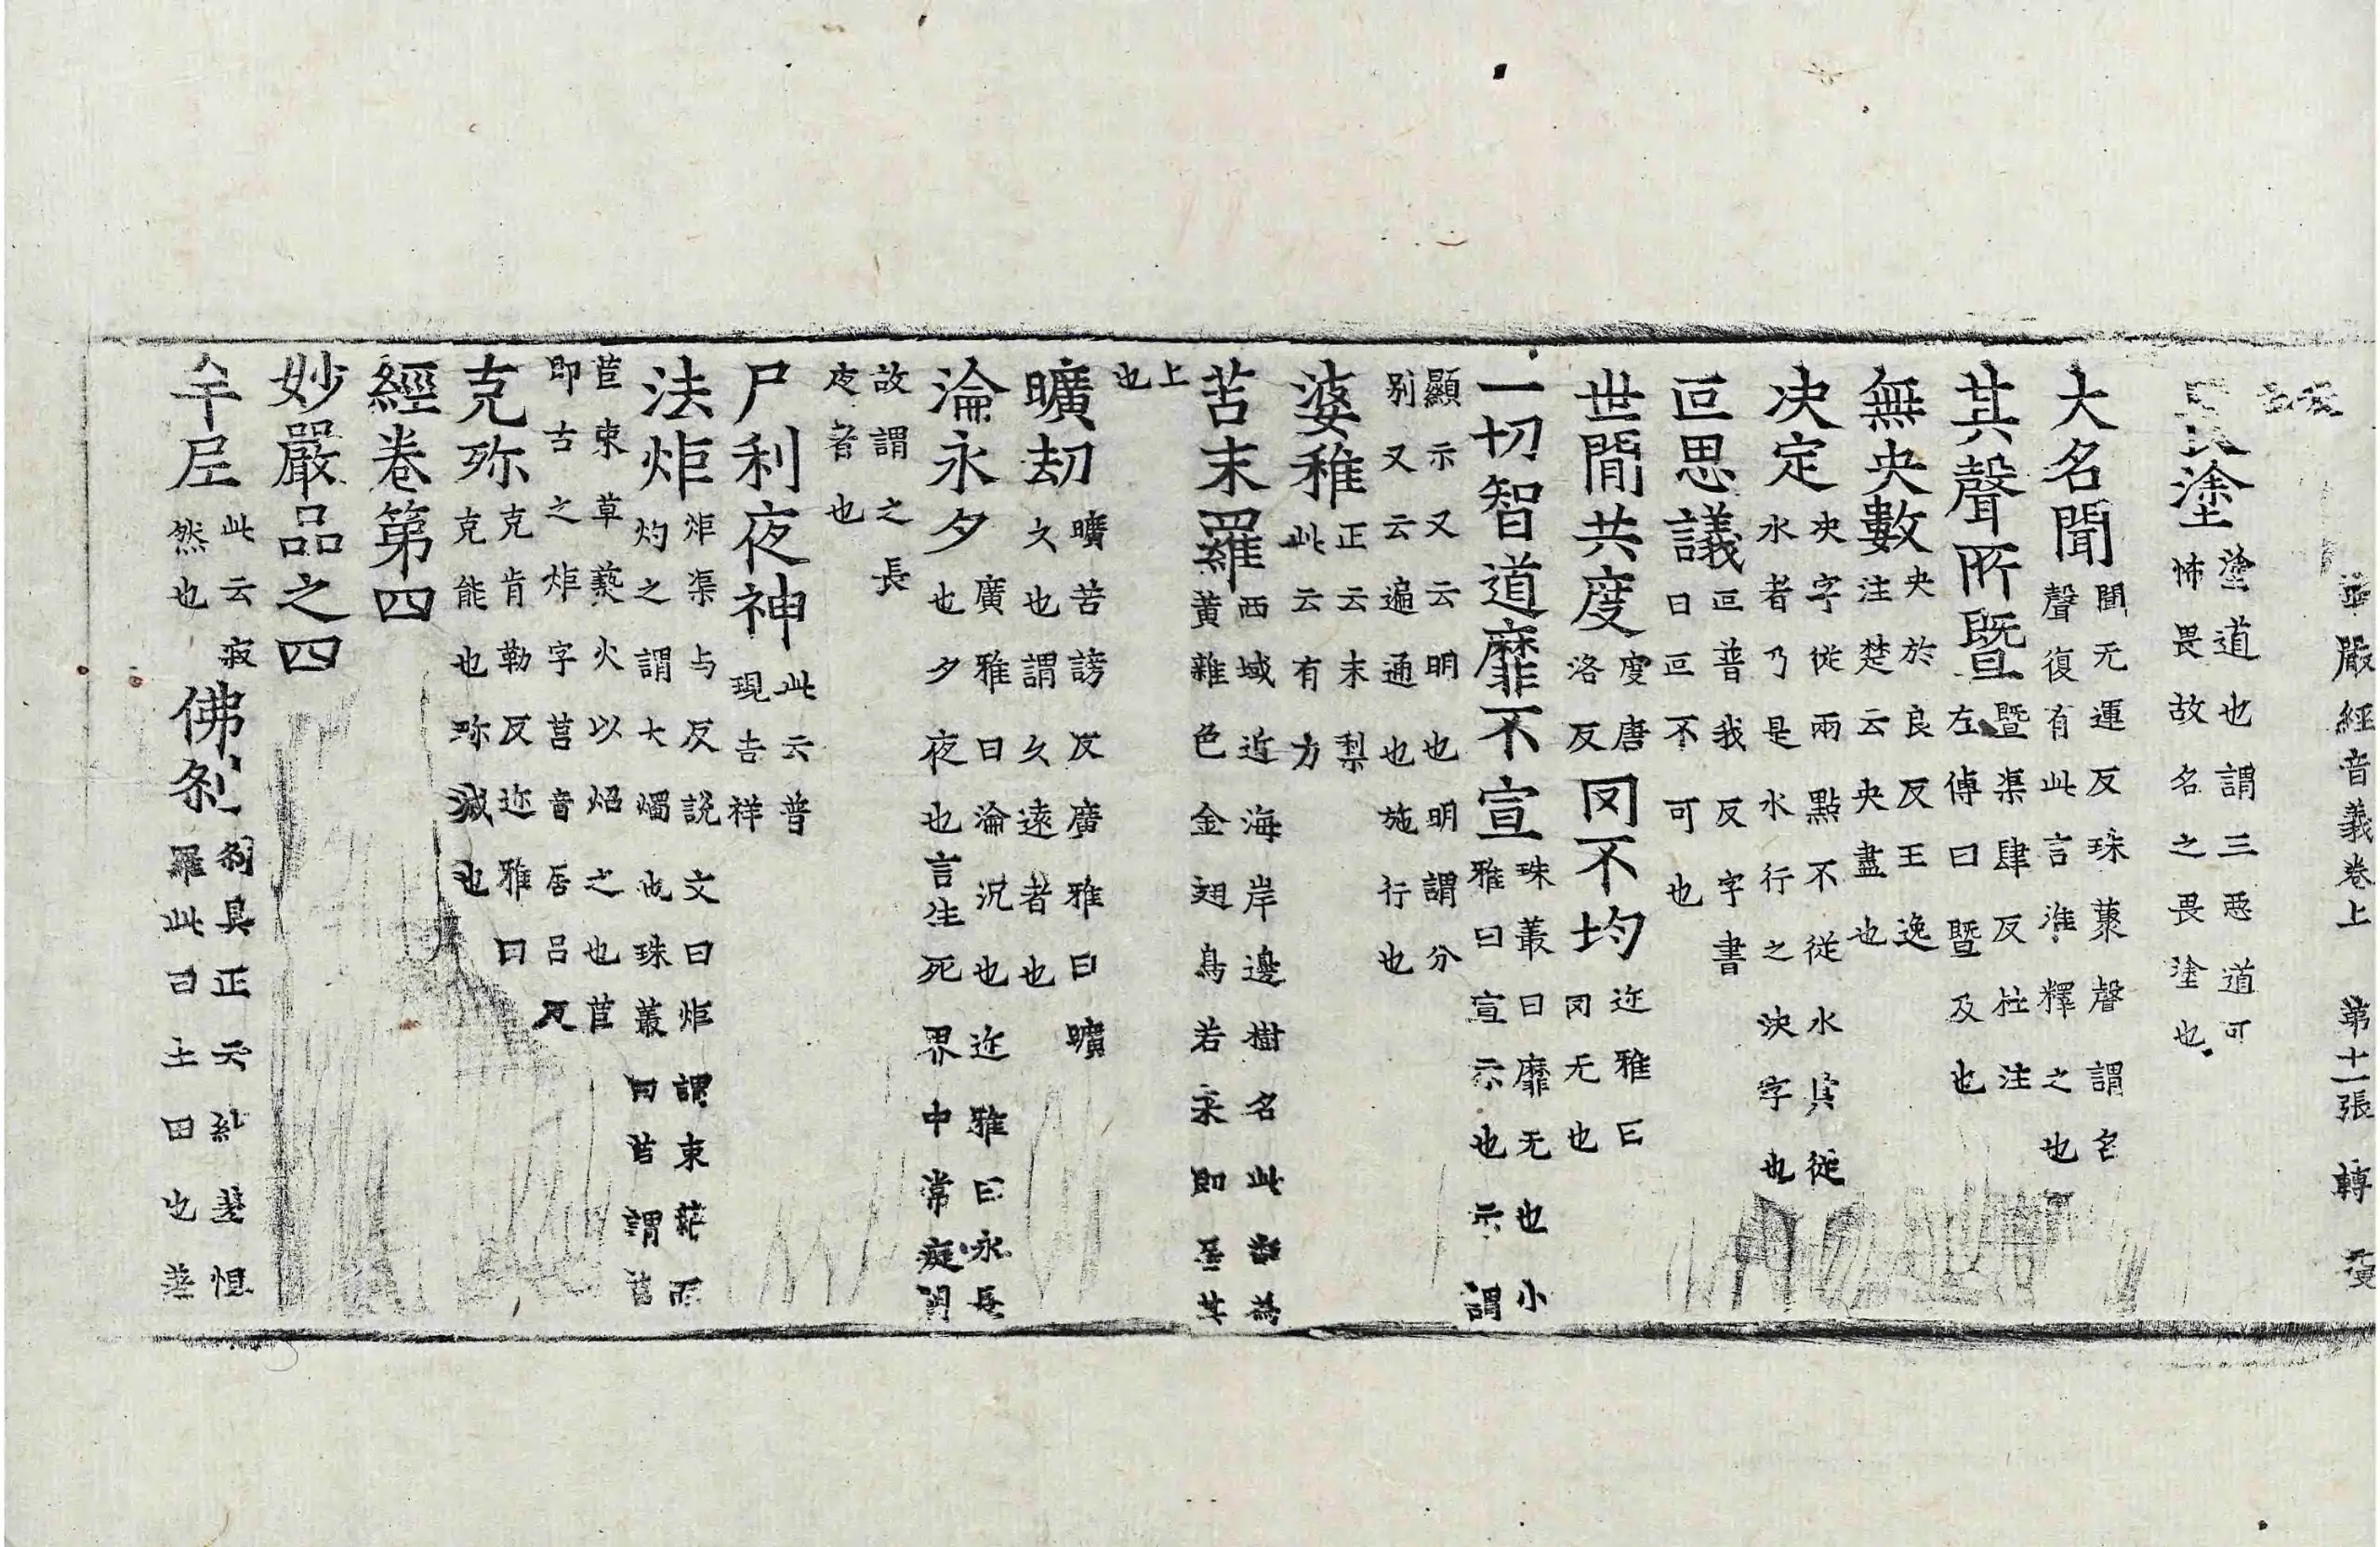 華嚴經音義卷上 第十一張 轉
畏塗塗道也謂三惡道可怖畏故名之畏塗也
大名聞聞无運反珠叢聲謂名聲復有此言准釋之也
其聲所暨暨渠肆反杜注左傳曰暨及也
無央數央於良反王逸注楚云央盡也
决定决字從兩點不從水其從水者乃是水行之決字也
叵思議叵普我反字書曰叵不可也
世間共度度唐洛反
罔不均迩雅曰罔无也
一切智道靡不宣珠叢曰靡无也小雅曰宣示也示謂
顯示又云明也明謂分别又云遍通也施行也
婆稚正云末梨此云有力
苦末羅西域近海岸邊樹名此翻為黃雜色金翅鳥若來即居其
上也
曠劫曠苦謗反廣雅曰曠久也謂久遠者也
淪永夕廣雅曰淪沉也迩雅曰永長也夕夜也言生死界中常寢闇
故謂之長夜者也
尸利夜神此云普現吉祥
法炬炬渠与反說文曰炬謂束薪而灼之謂大燭也珠叢曰苣謂苣
苣束草爇火以炤之也苣即古之炬字莒音居呂反
克殄克肯勒反迩雅曰克能也殄滅也
經卷第四
妙嚴品之四
牟尼此云寂然也
佛刹刹具正云紇差怛羅此曰土田也差